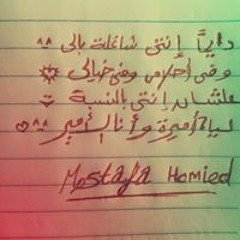 دايماً إنتى شاغلة بالى ^^
وفى أحلامى وفى خيالى
علشان إنتى بالنسبة
ليا أميرة وأنا الأمير ^^
Mostafa Hamied